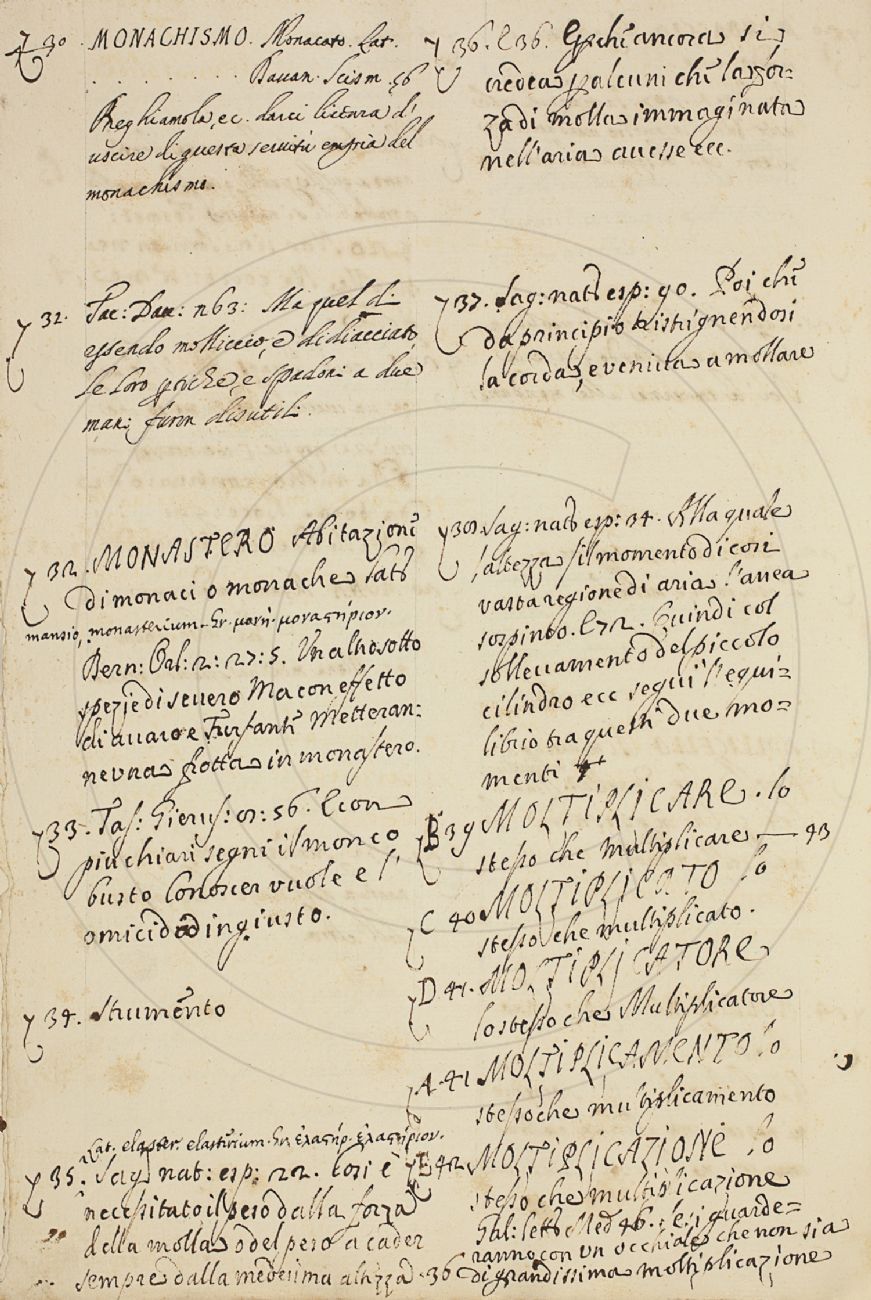 30. MONACHISMO. Monacato. Lat.
. . . . . . . . . . Davan. Scism. 56
Preghiamola, ec. darci licenza d'
uscire di questa servitù empia del
monachismo.
31. Tac: Dav: n 63: Ma quel dì
essendo molliccio, e didiacciato,
le loro picche, e spadoni a due
mani furon disutili.
32. MONASTERO Abitazione
di monaci o monache Lat.
mansio, monasterium. Gr. μονή. μοναστήριον.
Bern: Orl: 2: 27: 5. Un altro sotto
spezie di severo Ma con effetto
di avaro e Furfante Metteran:
ne una frotta in monastero.
33. Tas: Gierus: 8: 56. E con
più chiari segni il monco
busto Conoscer vuole e l'
omicida ingiusto.
34. Strumento
Lat. elaster. elasterium. Gr. ἐλαστήρ. ἐλαστήριον.
35. Sag: nat: esp: 22. Così è
necessitato il peso dalla forza
della molla o del peso a cader
sempre dalla medesima altezza. 36
36. E 36. Perchè ancora si
credea p alcuni che la for=
za di molla immaginata
nell'aria avesse ecc.
37. Sag: nat: esp: 90. Poi che
da principio ristrignendosi
la corda, e veniva a mollare
38. Sag: nat: esp: 34. Alla quale
altezza il momento di così
vasta regione di aria l'avea
sospinto. E 72. Quindi col
sollevamento del piccolo
cilindro ecc seguì l'equi=
librio tra questi due mo=
menti
B 39 MOLTIPLICARE. lo
stesso che multiplicare — 43
C 40 MOLTIPLICATO lo
stesso che multiplicato.
D 41. MOLTIPLICATORE
lo stesso che Multiplicatore
A. 41 MOLTIPLICAMENTO lo
stesso che multiplicamento
E 42. MOLTIPLICAZIONE lo
stesso che multiplicazione
Gal: lett: Med 46. se si guarde=
ranno con un occhiale che non sia
di grandissima moltiplicazione